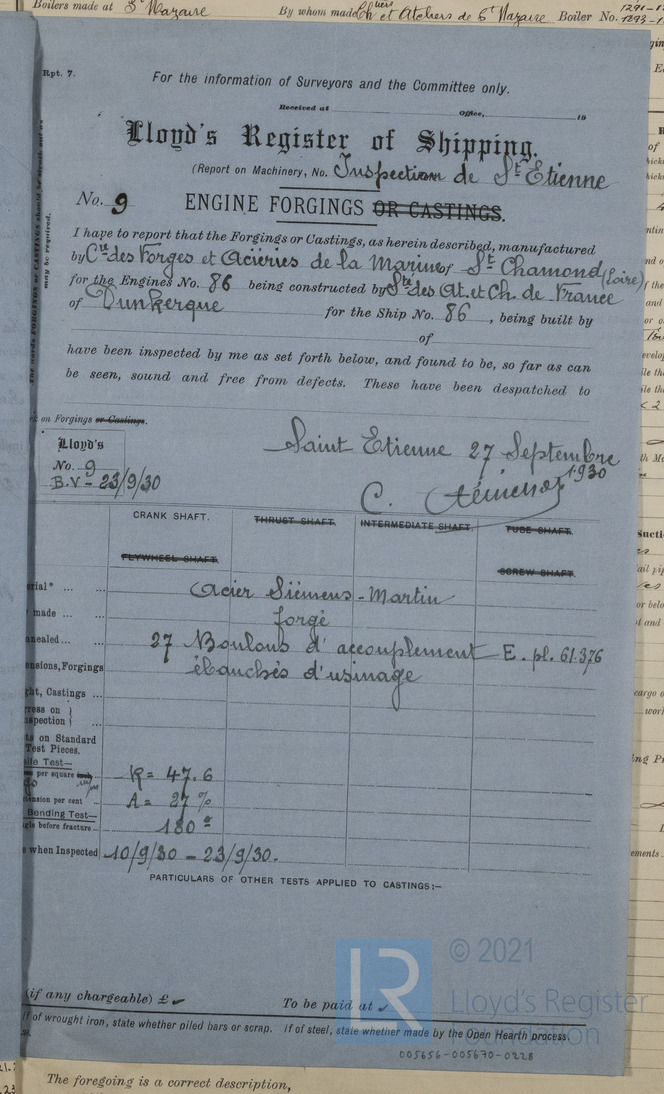 Boilers made at St Nazaire By whom made Chers et Ateliers de St Nazaire Boiler No. 1291-1
1293-1
Rpt. 7.
For the information of Surveyors and the Committee only.
Received at Office, 19
Lloyd's Register of Shipping.
(Report on Machinery, No. Inspection de St Etienne
No. 9 ENGINE FORGINGS OR CASTINGS.
I have to report that the Forgings or Castings, as herein described, manufactured
by Cie des Forges et Aciéries de la Marine of St Chamond (Loire)
for the Engines No. 86 being constructed by Sté des At. et Ch. de France
of Dunkerque for the Ship No. 86, being built by
of
have been inspected by me as set forth below, and found to be, so far as can
be seen, sound and free from defects. These have been despatched to
may be required.
on Forgings or Castings.
Lloyd's
No. 9
B.V - 23/9/30
Saint Etienne 27 Septembre
1930
C.
CRANK SHAFT. THRUST SHAFT. INTERMEDIATE SHAFT. TUBE SHAFT.
FLYWHEEL SHAFT. SCREW SHAFT.
erial* ... ... Acier Siémens-Martin
made ... ... forgé
nealed ... ... 27 Boulons d'accouplement E. pl. 61.376
ensions, Forgings ébauchés d'usinage
ht, Castings ...
ress on }
spection } ...
ts on Standard
Test Pieces.
ile Test—
per square inch R = 47.6
tension per cent ... A = 27 %
Bending Test—
gle before fracture ... 180°
s when Inspected 10/9/30 - 23/9/30.
PARTICULARS OF OTHER TESTS APPLIED TO CASTINGS:—
© 2021
LR
Lloyd's Register
Foundation
(if any chargeable) £ To be paid at
If of wrought iron, state whether piled bars or scrap. If of steel, state whether made by the Open Hearth process.
005656-005670-0228
The foregoing is a correct description,